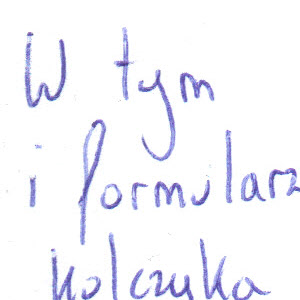 W tym
i formularz
kolczyka